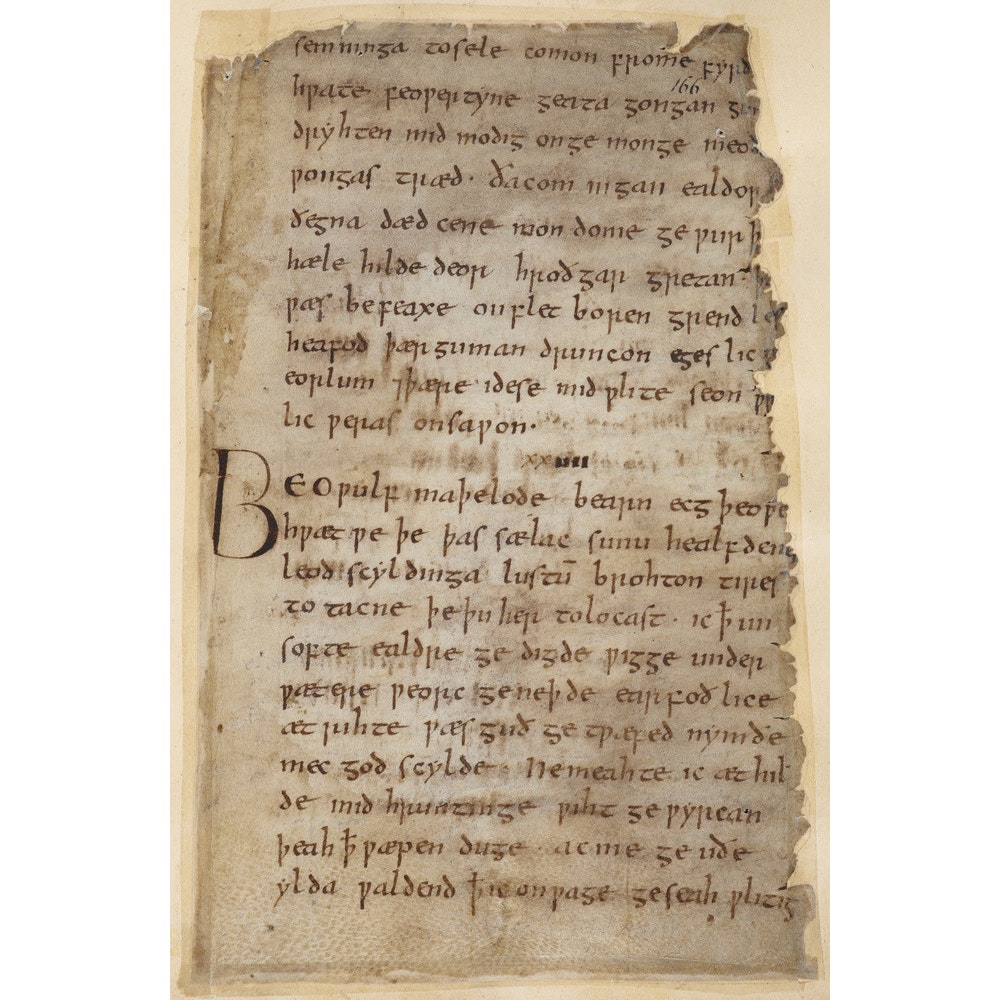 semninga tosele comon frome fyrd
hƿate feoƿertyne geata gongan gu
166
dryhten mid modig onge monge meodo
ƿongas træd · ða com in gan ealdor
ðegna dæd cene mon dome ge ƿurþ
hæle hilde deor hroðgar gretan · þ
ƿæs be feaxe on flet boren grendles
heafod þær guman druncon egeslic
eorlum ⁊ þære idese mid ƿlite seon ƿr
lic ƿeras onsaƿon ·
xxiiii
BEOƿulf maþelode bearn ecg þeoƿe
hƿæt ƿe þe þas sælac sunu healfdenes
leod scyldinga lustū brohton tires
to tacne þe þu her to locast · ic ꝥ un
softe ealdre ge digde ƿigge under
ƿætere ƿeorc ge neþde earfoð lice
æt rihte ƿæs guð ge tƿæfed nymðe
mec god scylde · Ne meahte ic æt hil
de mid hruntinge ƿiht ge ƿyrcan
þeah ꝥ ƿæpen duge · ac me ge uðe
ylda ƿaldend ꝥ ic on ƿage geseah ƿlitig